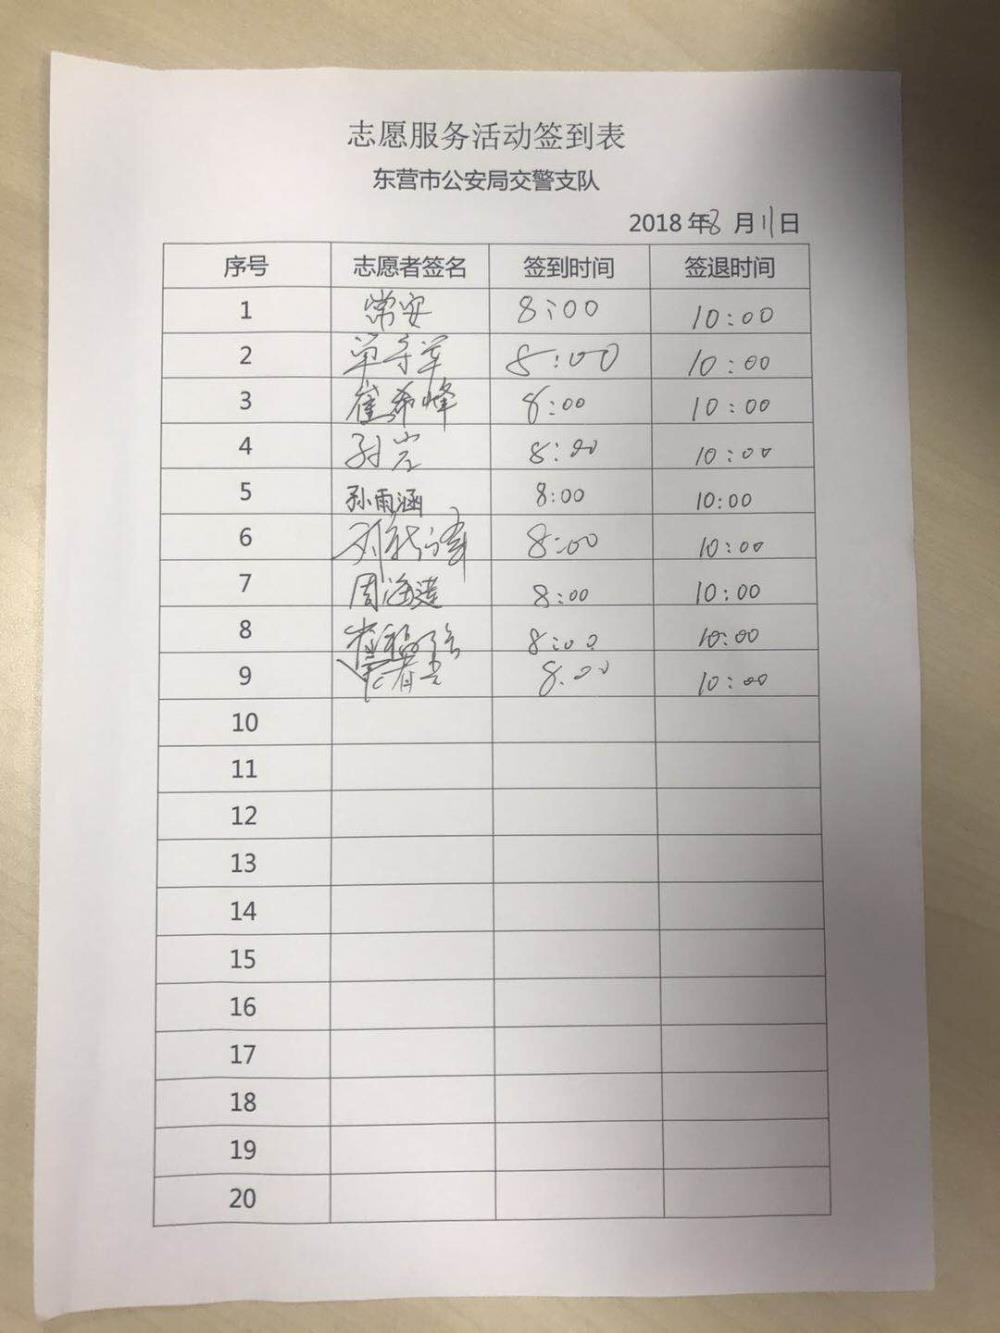 志愿服务活动签到表
东营市公安局交警支队
2018年8月11日
序号 志愿者签名 签到时间 签退时间
1 常安 8:00 10:00
2 单守军 8:00 10:00
3 崔希峰 8:00 10:00
4 孙岩 8:00 10:00
5 孙雨涵 8:00 10:00
6 8:00 10:00
7 周海莲 8:00 10:00
8 崔福强 8:00 10:00
9 8:00 10:00
10
11
12
13
14
15
16
17
18
19
20